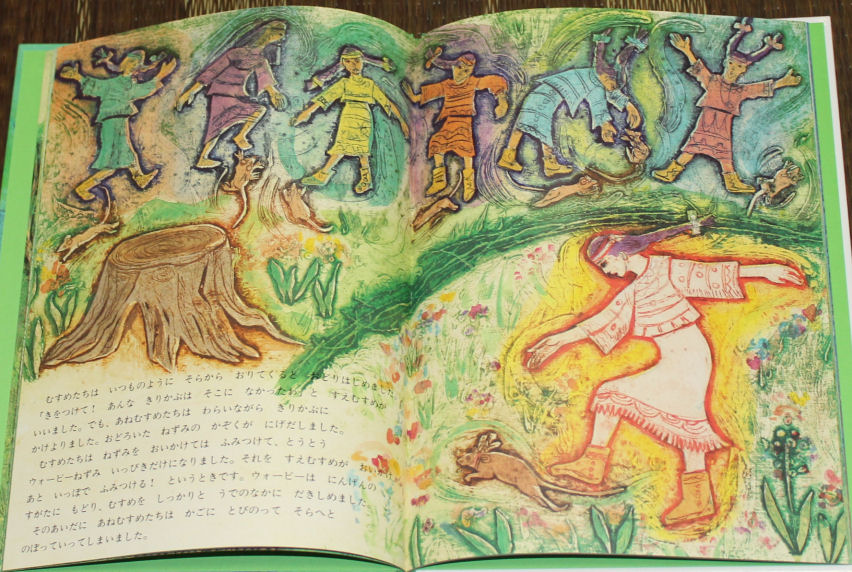 むすめたちは いつものように そらから おりてくると おどりはじめました
「きをつけて! あんな きりかぶは そこに なかったわ」と すえむすめが
いいました。でも、あねむすめたちは わらいながら きりかぶに
かけよりました。おどろいた ねずみの かぞくが にげだしました。
むすめたちは ねずみを おいかけては ふみつけて、とうとう
ウォービーねずみ いっぴきだけになりました。それを すえむすめが おいかけ
あと いっぽで ふみつける! というときです。ウォービーは にんげんの
すがたに もどり、むすめを しっかりと うでのなかに だきしめました
そのあいだに あねむすめたちは かごに とびのって そらへと
のぼっていってしまいました。